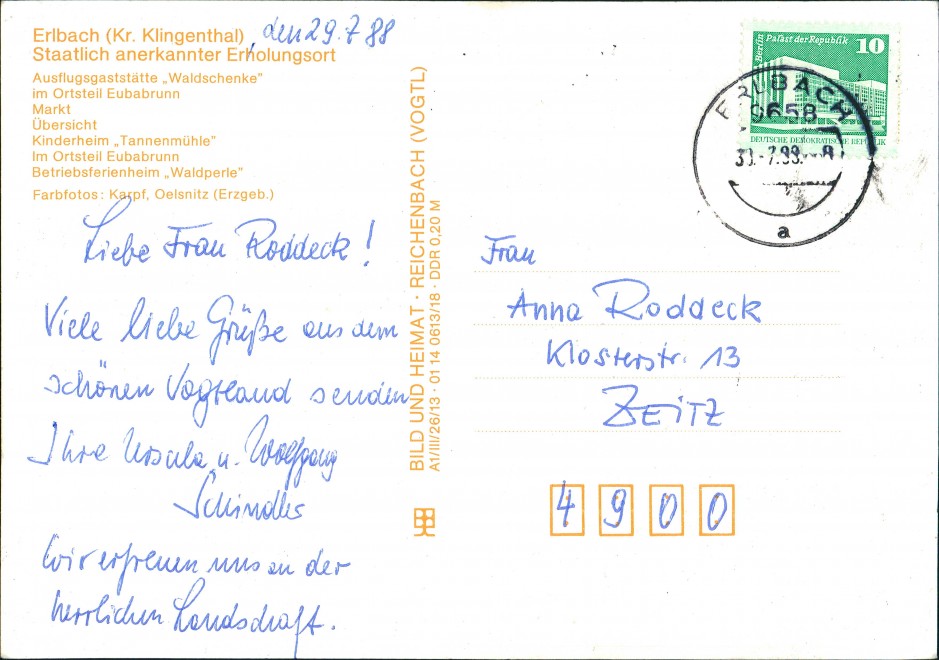 Erlbach (Kr. Klingenthal), den 29.7.88
Staatlich anerkannter Erholungsort
Ausflugsgaststätte „Waldschenke“
im Ortsteil Eubabrunn
Markt
Übersicht
Kinderheim „Tannenmühle“
Im Ortsteil Eubabrunn
Betriebsferienheim „Waldperle“
Farbfotos: Karpf, Oelsnitz (Erzgeb.)
Liebe Frau Roddeck!
Viele liebe Grüße aus dem
schönen Vogtland senden
Ihre Ursula u. Wolfgang
Schindler
Wir erfreuen uns an der
herrlichen Landschaft.
BILD UND HEIMAT · REICHENBACH (VOGTL)
A1/III/26/13 · 01 14 0613/18 · DDR 0,20 M
Berlin Palast der Republik 10
DEUTSCHE DEMOKRATISCHE REPUBLIK
ERLBACH
9658
a
Frau
Anna Roddeck
Klosterstr. 13
ZEITZ
4900